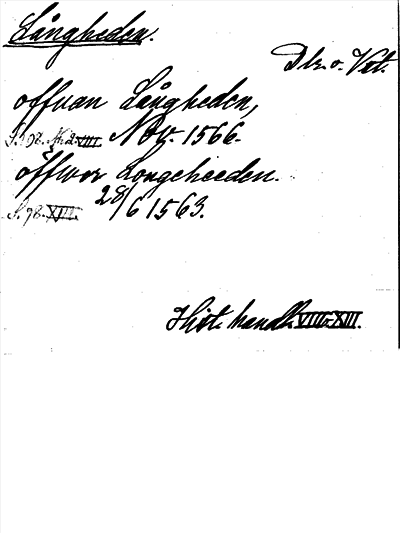 Långheden.
Dlr. o. Vst.
offuan Långheden,
S. 98. N:2. VIII. Nov. 1566.
öffwer Longeheeden.
S. 98. XIII. 28/6 1563.
Hist. handl. VIII-XIII.